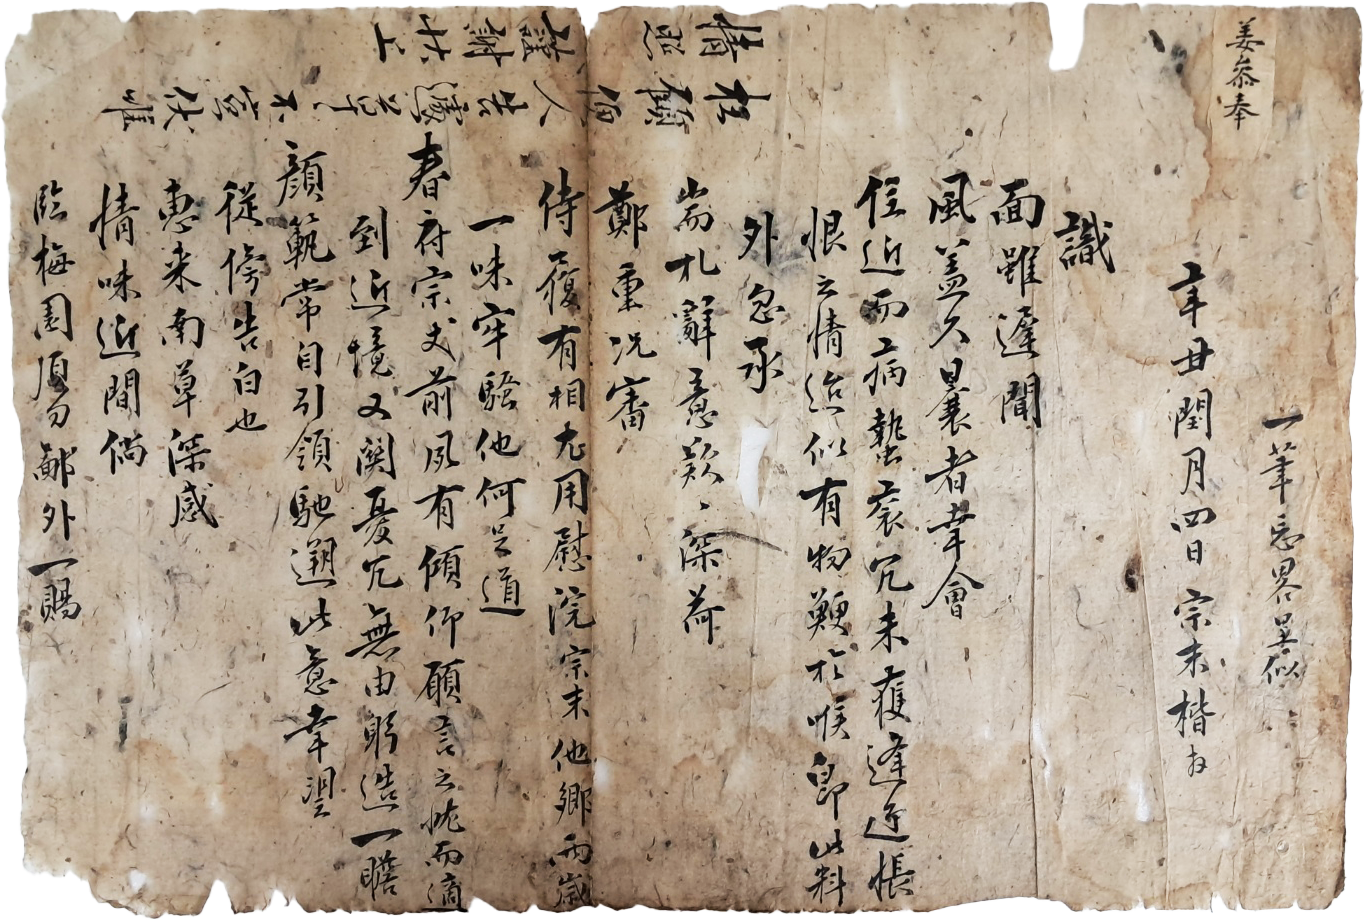 姜參奉
識
面雖遲聞
風蓋久曩者幸會
住近而病蟄衰冗未獲逢迎悵
恨之情迨似有物鯁於喉卽此料
外忽承
耑札辭意款〻深荷
鄭重況審
侍履有相尤用慰浣宗末他鄕兩歲
一味牢騷他何足道
春府宗丈前夙有傾仰願言之忱而適
到近境又闋憂冗無由躬造一瞻
顔範常自引領馳遡此意幸望
從傍告白也
惠來南草深感
情味近間倘
臨梅園須勿鄙外一賜
枉顧伻人告還草〻不宣伏惟
情照謹謝狀上
辛丑閏月四日宗末楷拜
一筆忘略呈似〻〻